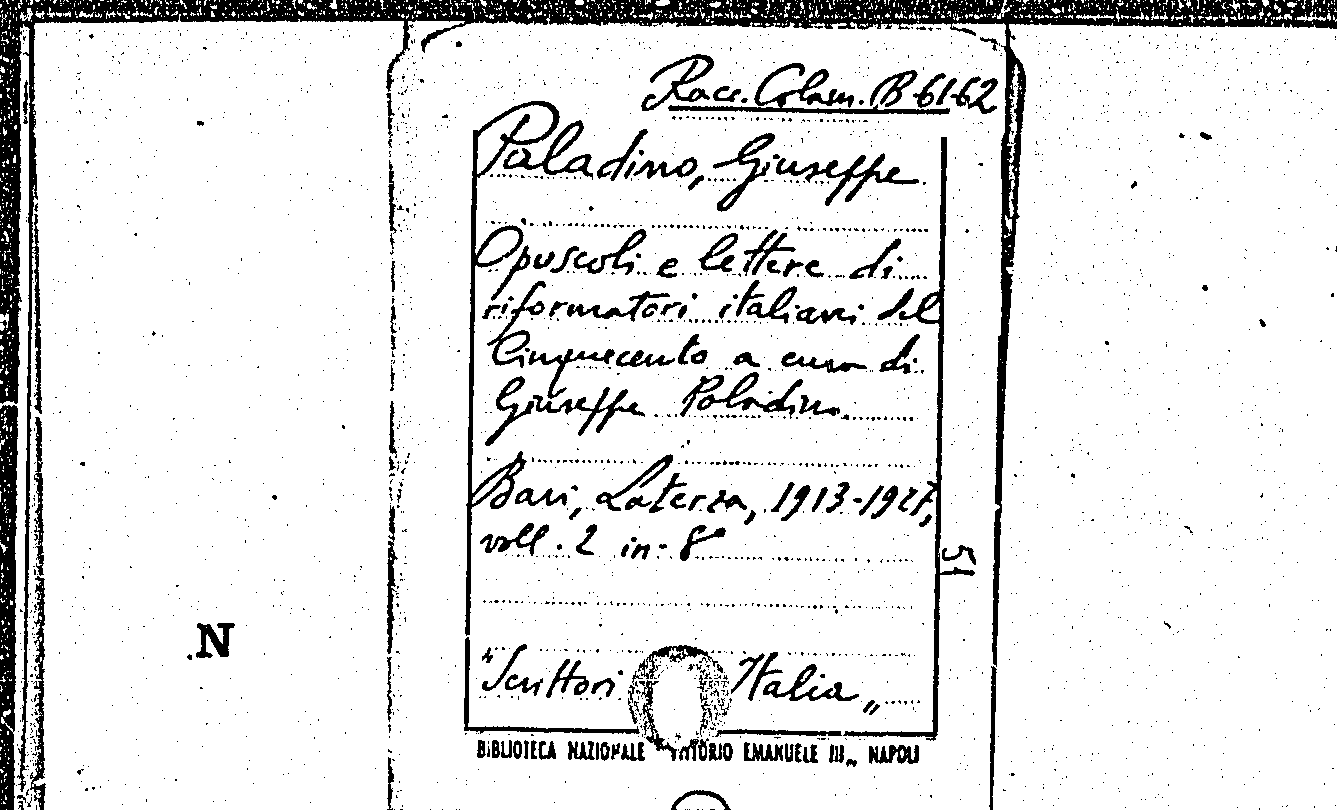 Racc. Colam. B-61-62
Paladino, Giuseppe
Opuscoli e lettere di
riformatori italiani del
Cinquecento a cura di
Giuseppe Paladino.
Bari, Laterza, 1913-1927,
voll. 2 in-8°
51
N
"Scrittori Italia„
BIBLIOTECA NAZIONALE VITTORIO EMANUELE III„ NAPOLI